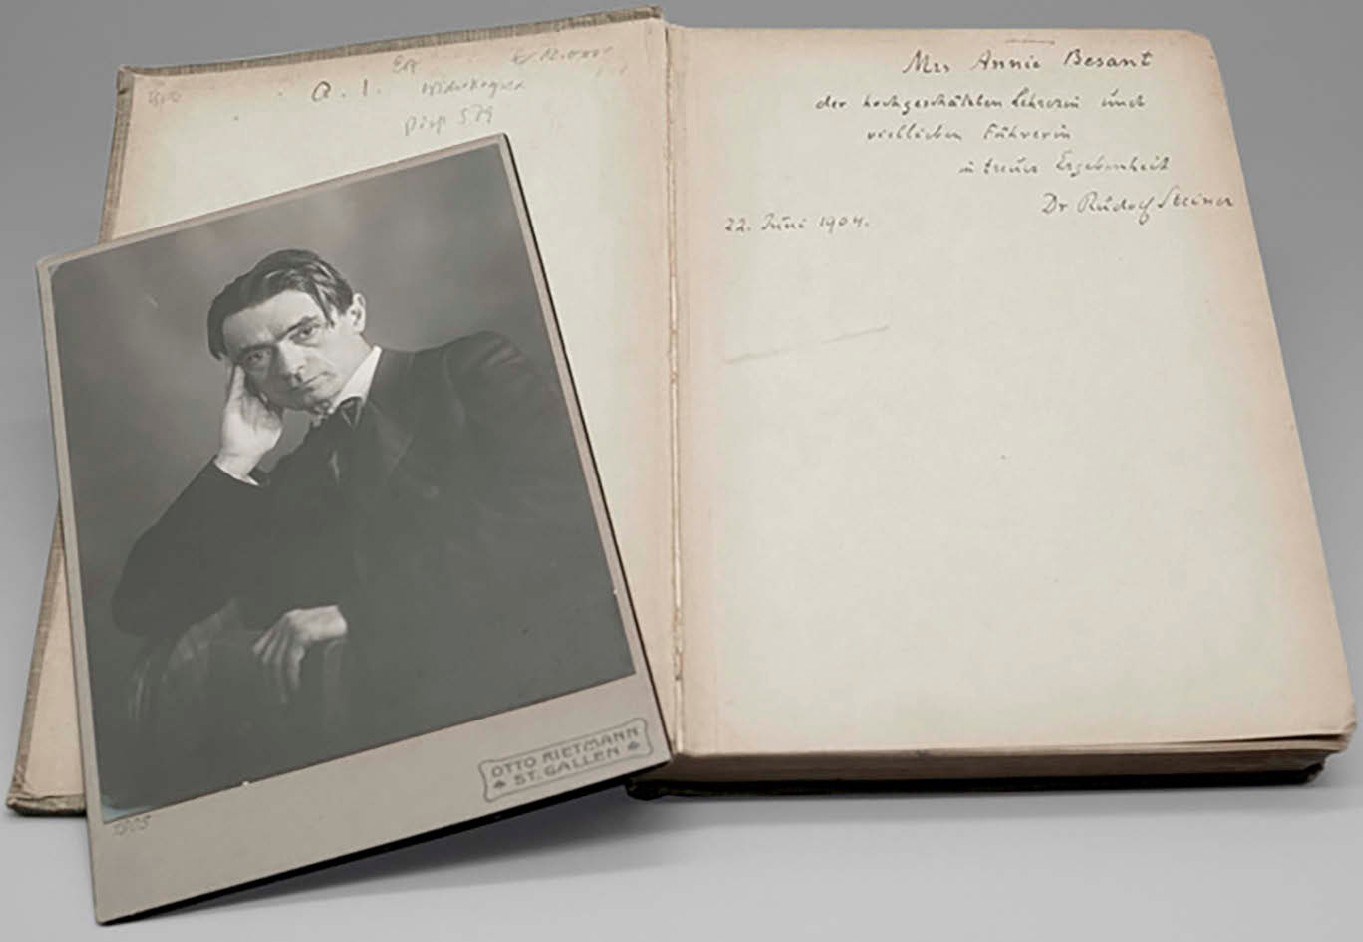 a. l.
Mrs Annie Besant
der hochgeschätzten Lehrerin und
viellieben Führerin
in treuer Ergebenheit
Dr Rudolf Steiner
22. Juni 1904.
OTTO RIETMANN
ST. GALLEN
1905